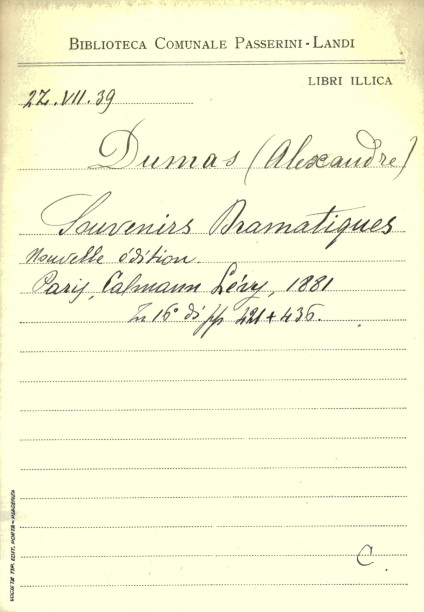 BIBLIOTECA COMUNALE PASSERINI-LANDI
LIBRI ILLICA
27.VII.39
Dumas (Alexandre)
Souvenirs Dramatiques
Nouvelle édition.
Paris, Calmann Lévy, 1881
In 16° di pp 421 + 436.
C.
SOCIETÀ TIP. EDIT. PORTA - PIACENZA